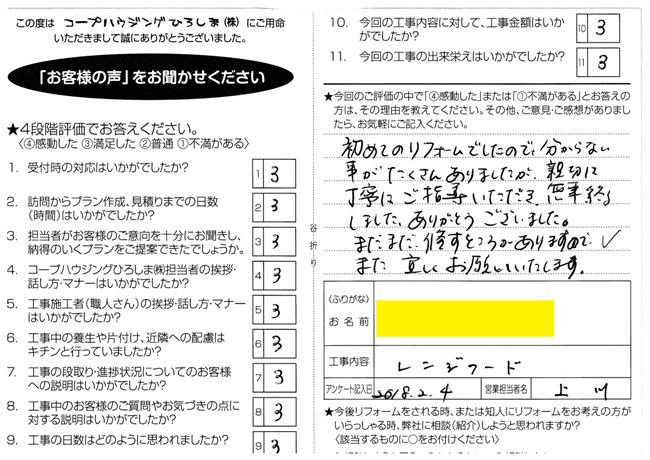 この度は コープハウジングひろしま(株) にご用命
いただきまして誠にありがとうございました。
「お客様の声」をお聞かせください
★4段階評価でお答えください。
〈④感動した ③満足した ②普通 ①不満がある〉
1. 受付時の対応はいかがでしたか? 1 3
2. 訪問からプラン作成、見積りまでの日数
(時間)はいかがでしたか? 2 3
3. 担当者がお客様のご意向を十分にお聞きし、
納得のいくプランをご提案できたでしょうか。 3 3
4. コープハウジングひろしま㈱担当者の挨拶・
話し方・マナーはいかがでしたか? 4 3
5. 工事施工者(職人さん)の挨拶・話し方・マナー
はいかがでしたか? 5 3
6. 工事中の養生や片付け、近隣への配慮は
キチンと行っていましたか? 6 3
7. 工事の段取り・進捗状況についてのお客様
への説明はいかがでしたか? 7 3
8. 工事中のお客様のご質問やお気づきの点に
対する説明はいかがでしたか? 8 3
9. 工事の日数はどのように思われましたか? 9 3
谷折り
10. 今回の工事内容に対して、工事金額はいか
がでしたか? 10 3
11. 今回の工事の出来栄えはいかがでしたか? 11 3
★今回のご評価の中で「④感動した」または「①不満がある」とお答えの
方は、その理由を教えてください。その他、ご意見・ご感想がありまし
たら、お気軽にご記入ください。
初めてのリフォームでしたので、分からない
事がたくさんありましたが、親切に
丁寧にご指導いただき、無事終了
しました、ありがとうございました。
まだまだ、修すところがありますので、
また宜しくお願いいたします。
(ふりがな)
お名前
工事内容 レンジフード
アンケート記入日 2018.2.4 営業担当者名 上川
★今後リフォームをされる時、または知人にリフォームをお考えの方が
いらっしゃる時、弊社に相談(紹介)しようと思われますか?
〈該当するものに○をお付けください〉